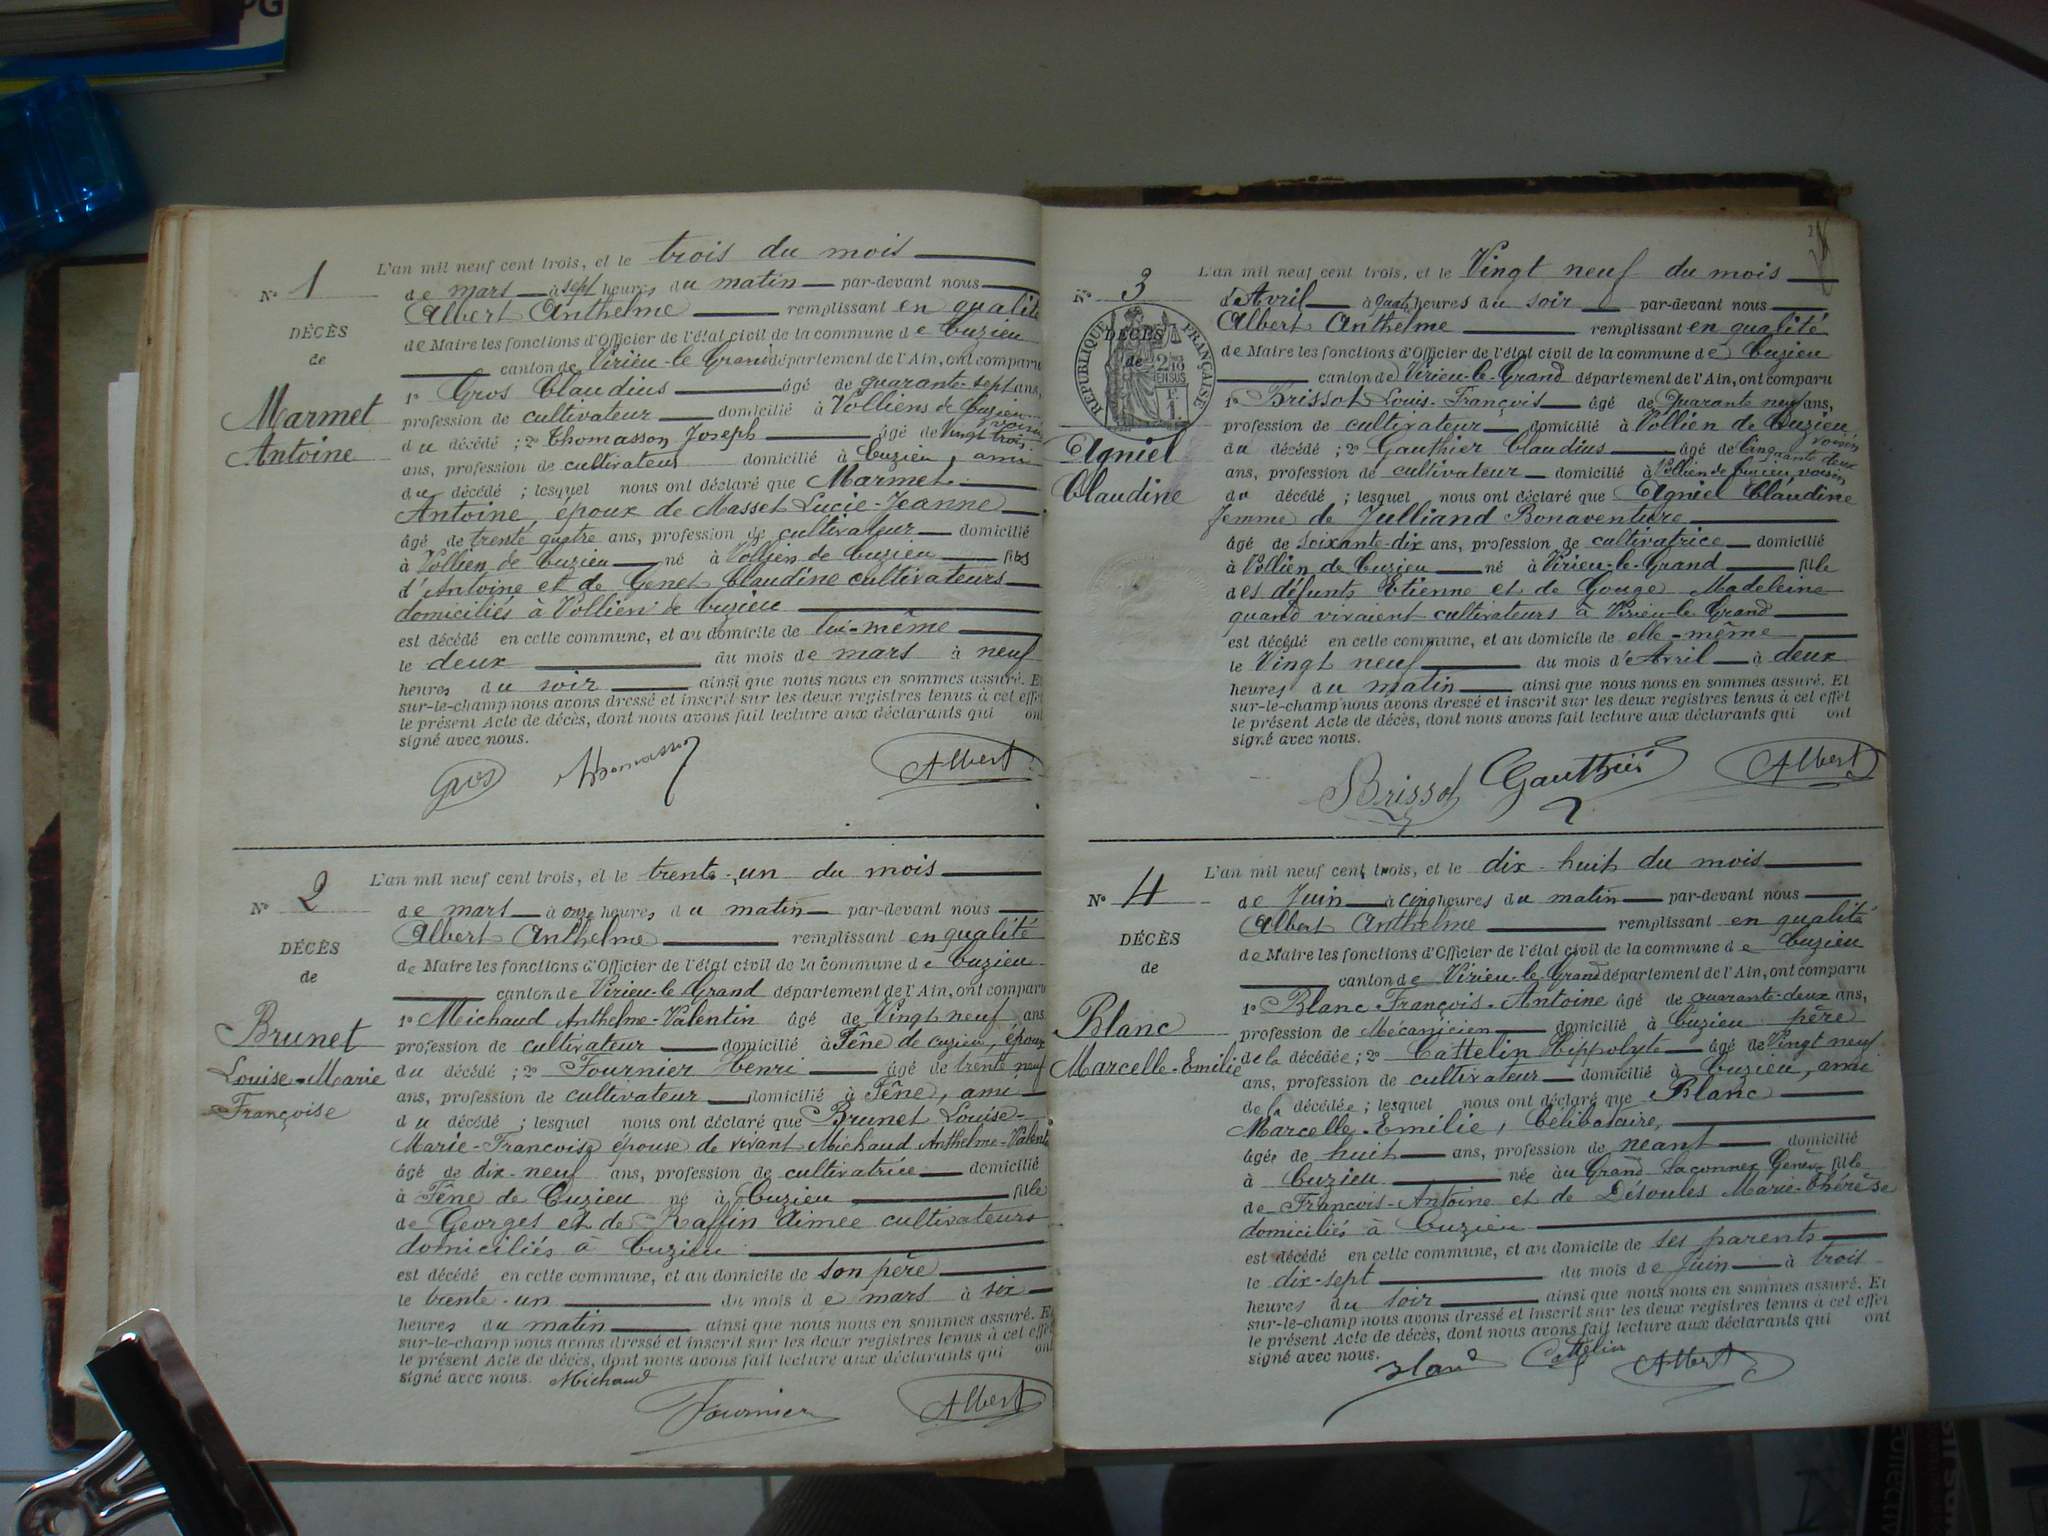 N° 1
DÉCÈS
de
Marmet
Antoine
L'an mil neuf cent trois, et le trois du mois
de mars à sept heures du matin par-devant nous
Albert Anthelme remplissant en qualité
de Maire les fonctions d'Officier de l'état civil de la commune de Cuzieu
canton de Virieu-le-Grand département de l'Ain, ont comparu
1° Gros Claudius âgé de quarante-sept ans,
profession de cultivateur domicilié à Volliens de Cuzieu voisin
du décédé ; 2° Thomasson Joseph âgé de vingt trois
ans, profession de cultivateur domicilié à Cuzieu, ami
du décédé ; lesquel nous ont déclaré que Marmet
Antoine, époux de Masset Lucie-Jeanne
âgé de trente quatre ans, profession de cultivateur domicilié
à Vollien de Cuzieu né à Vollien de Cuzieu fils
d'Antoine et de Genet Claudine cultivateurs
domiciliés à Vollien de Cuzieu
est décédé en cette commune, et au domicile de lui-même
le deux du mois de mars à neuf
heures du soir ainsi que nous nous en sommes assuré. Et
sur-le-champ nous avons dressé et inscrit sur les deux registres tenus à cet effet
le présent Acte de décès, dont nous avons fait lecture aux déclarants qui ont
signé avec nous.
Gros Thomasson Albert
N° 2
DÉCÈS
de
Brunet
Louise-Marie
Françoise
L'an mil neuf cent trois, et le trente-un du mois
de mars à onze heures du matin par-devant nous
Albert Anthelme remplissant en qualité
de Maire les fonctions d'Officier de l'état civil de la commune de Cuzieu
canton de Virieu-le-Grand département de l'Ain, ont comparu
1° Michaud Anthelme-Valentin âgé de Vingt neuf ans
profession de cultivateur domicilié à Fêne de cuzieu, époux
du décédé ; 2° Fournier Henri âgé de trente neuf
ans, profession de cultivateur domicilié à Fêne, ami
du décédé ; lesquel nous ont déclaré que Brunet Louise-
Marie-Françoise épouse de vivant Michaud Anthelme-Valentin
âgé de dix-neuf ans, profession de cultivatrice domicilié
à Fêne de Cuzieu né à Cuzieu fille
de Georges et de Raffin Aimée cultivateurs
domiciliés à Cuzieu
est décédé en cette commune, et au domicile de son père
le trente-un du mois de mars à six
heures du matin ainsi que nous nous en sommes assuré. Et
sur-le-champ nous avons dressé et inscrit sur les deux registres tenus à cet effet
le présent Acte de décès, dont nous avons fait lecture aux déclarants qui ont
signé avec nous. Michaud
Fournier Albert
2
N° 3
DÉCÈS
de
RÉPUBLIQUE FRANÇAISE
Agniel
Claudine
L'an mil neuf cent trois, et le Vingt neuf du mois
d'Avril à quatre heures du soir par-devant nous
Albert Anthelme remplissant en qualité
de Maire les fonctions d'Officier de l'état civil de la commune de Cuzieu
canton de Virieu-le-Grand département de l'Ain, ont comparu
1° Brissot Louis-François âgé de Quarante neuf ans,
profession de cultivateur domicilié à Vollien de Cuzieu voisin
du décédé ; 2° Gauthier Claudius âgé de Cinquante deux
ans, profession de cultivateur domicilié à Vollien de Cuzieu, voisin
du décédé ; lesquel nous ont déclaré que Agniel Claudine
femme de Julliand Bonaventure
âgé de soixante-dix ans, profession de cultivatrice domicilié
à Vollien de Cuzieu né à Virieu-le-Grand fille
des défunts Etienne et de Gouge Madeleine
quand vivaient cultivateurs à Virieu-le Grand
est décédé en cette commune, et au domicile de elle-même
le Vingt neuf du mois d'Avril à deux
heures du matin ainsi que nous nous en sommes assuré. Et
sur-le-champ nous avons dressé et inscrit sur les deux registres tenus à cet effet
le présent Acte de décès, dont nous avons fait lecture aux déclarants qui ont
signé avec nous.
Brissot Gauthier Albert
N° 4
DÉCÈS
de
Blanc
Marcelle-Emilie
L'an mil neuf cent trois, et le dix-huit du mois
de Juin à cinq heures du matin par-devant nous
Albert Anthelme remplissant en qualité
de Maire les fonctions d'Officier de l'état civil de la commune de Cuzieu
canton de Virieu-le-Grand département de l'Ain, ont comparu
1° Blanc François-Antoine âgé de quarante-deux ans,
profession de Mécanicien domicilié à Cuzieu père
de la décédée ; 2° Cattelin Hippolyte âgé de Vingt neuf
ans, profession de cultivateur domicilié à Cuzieu, ami
de la décédée ; lesquel nous ont déclaré que Blanc
Marcelle-Emilie, Célibataire,
âgée de huit ans, profession de néant domicilié
à Cuzieu née au Grand Saconnex Genève fille
de François-Antoine et de Désoules Marie-Thérèse
domiciliés à Cuzieu
est décédé en cette commune, et au domicile de ses parents
le dix-sept du mois de Juin à trois
heures du soir ainsi que nous nous en sommes assuré. Et
sur-le-champ nous avons dressé et inscrit sur les deux registres tenus à cet effet
le présent Acte de décès, dont nous avons fait lecture aux déclarants qui ont
signé avec nous.
Blanc Cattelin Albert